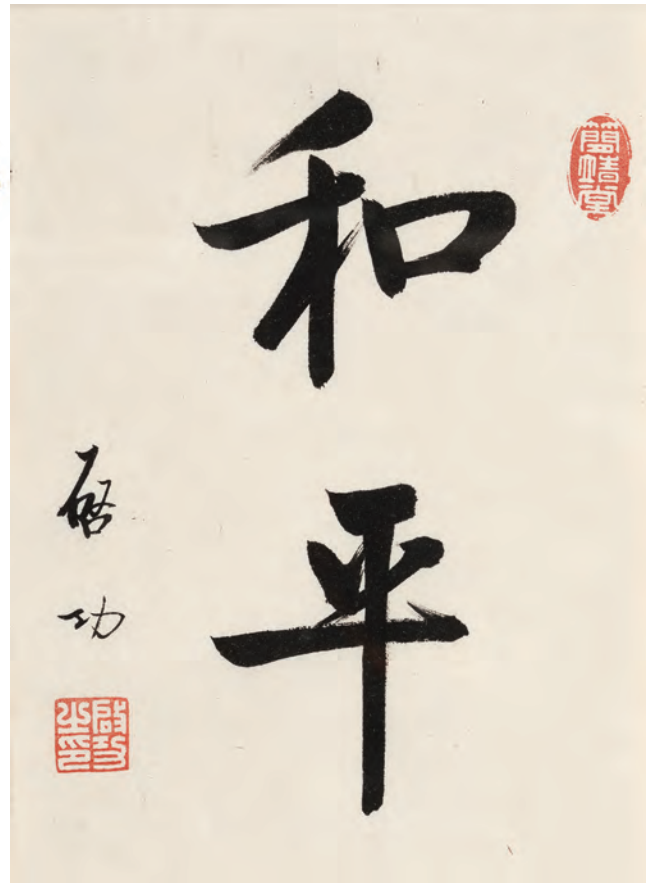 簡靖堂
和平
启功
啟功
之印